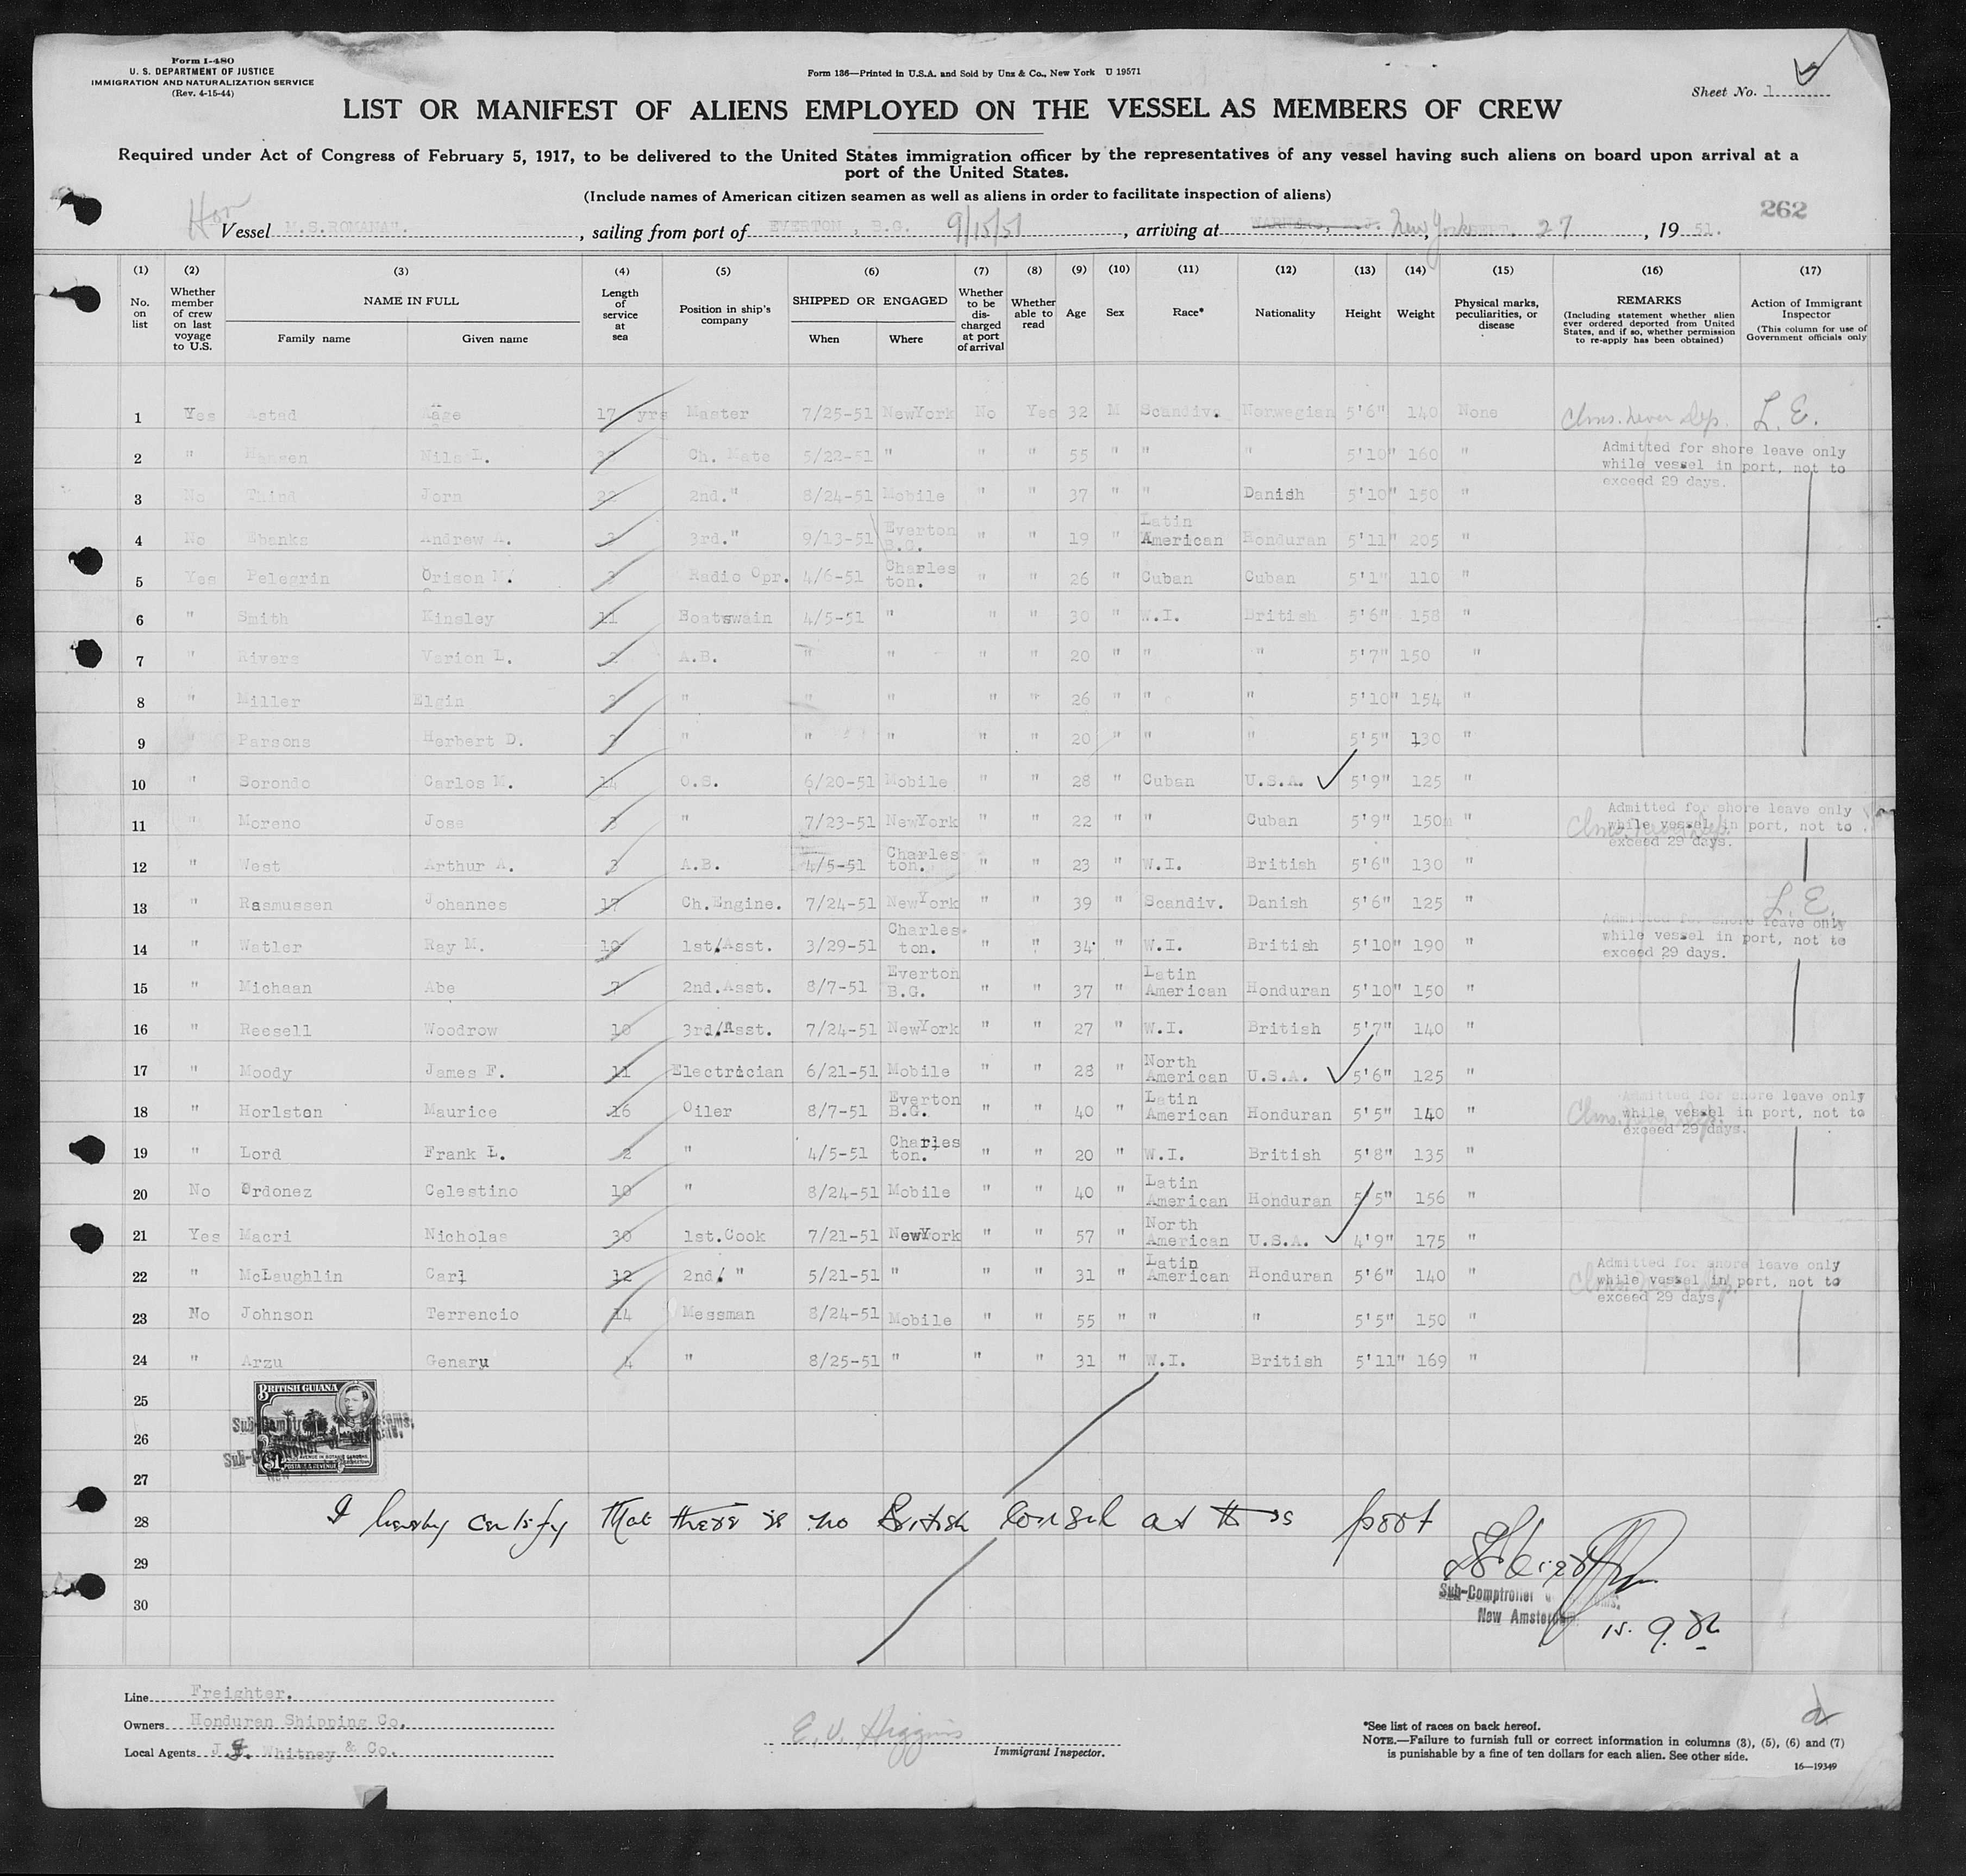 Form I-480
U. S. DEPARTMENT OF JUSTICE
IMMIGRATION AND NATURALIZATION SERVICE
(Rev. 4-15-44)
Form 136—Printed in U.S.A. and Sold by Unz & Co., New York U 19571
Sheet No. 1
LIST OR MANIFEST OF ALIENS EMPLOYED ON THE VESSEL AS MEMBERS OF CREW
Required under Act of Congress of February 5, 1917, to be delivered to the United States immigration officer by the representatives of any vessel having such aliens on board upon arrival at a
port of the United States.
(Include names of American citizen seamen as well as aliens in order to facilitate inspection of aliens)
262
Hon
Vessel M.S.ROMANAN. , sailing from port of EVERTON, B.G. 9/15/51 , arriving at New York 27 , 19 51.
(1) (2) (3) (4) (5) (6) (7) (8) (9) (10) (11) (12) (13) (14) (15) (16) (17)
No. on list
Whether member of crew on last voyage to U.S.
NAME IN FULL
Family name Given name
Length of service at sea
Position in ship's company
SHIPPED OR ENGAGED
When Where
Whether to be discharged at port of arrival
Whether able to read
Age
Sex
Race*
Nationality
Height
Weight
Physical marks, peculiarities, or disease
REMARKS
(Including statement whether alien ever ordered deported from United States, and if so, whether permission to re-apply has been obtained)
Action of Immigrant Inspector
(This column for use of Government officials only
1 Yes Astad Aage 17 yrs Master 7/25-51 NewYork No Yes 32 M Scandiv. Norwegian 5'6" 140 None Clms. never dep. L.E.
2 " Hansen Nils L. Ch. Mate 5/22-51 " " " 55 " " " 5'10" 160 "
Admitted for shore leave only
while vessel in port, not to
exceed 29 days.
3 No Thind Jorn 22 2nd." 8/24-51 Mobile " " 37 " " Danish 5'10" 150 "
4 No Ebanks Andrew A. 3 3rd." 9/13-51 Everton B.G. " " 19 " Latin American Honduran 5'11" 205 "
5 Yes Pelegrin Orison M. 3 Radio Opr. 4/6-51 Charles ton. " " 26 " Cuban Cuban 5'1" 110 "
6 " Smith Kinsley 11 Boatswain 4/5-51 " " " 30 " W.I. British 5'6" 158 "
7 " Rivers Varion L. 2 A.B. " " " " 20 " " " 5'7" 150 "
8 " Miller Elgin 3 " " " " " 26 " " " 5'10" 154 "
9 " Parsons Herbert D. 3 " " " " " 20 " " " 5'5" 130 "
10 " Sorondo Carlos M. 14 O.S. 6/20-51 Mobile " " 28 " Cuban U.S.A. 5'9" 125 "
11 " Moreno Jose 3 " 7/23-51 NewYork " " 22 " " Cuban 5'9" 150 "
Admitted for shore leave only
while vessel in port, not to
exceed 29 days.
12 " West Arthur A. 3 A.B. 4/5-51 Charles ton. " " 23 " W.I. British 5'6" 130 "
13 " Rasmussen Johannes 17 Ch.Engine. 7/24-51 NewYork " " 39 " Scandiv. Danish 5'6" 125 " L.E.
Admitted for shore leave only
while vessel in port, not to
exceed 29 days.
14 " Watler Ray M. 10 1st/Asst. 3/29-51 Charles- ton. " " 34 " W.I. British 5'10" 190 "
15 " Michaan Abe 7 2nd.Asst. 8/7-51 Everton B.G. " " 37 " Latin American Honduran 5'10" 150 "
16 " Reesell Woodrow 10 3rd/Asst. 7/24-51 NewYork " " 27 " W.I. British 5'7" 140 "
17 " Moody James F. 11 Electrician 6/21-51 Mobile " " 28 " North American U.S.A. 5'6" 125 "
18 " Horlston Maurice 16 Oiler 8/7-51 Everton B.G. " " 40 " Latin American Honduran 5'5" 140 "
Admitted for shore leave only
while vessel in port, not to
exceed 29 days.
19 " Lord Frank L. 2 " 4/5-51 Charles ton. " " 20 " W.I. British 5'8" 135 "
20 No Ordonez Celestino 10 " 8/24-51 Mobile " " 40 " Latin American Honduran 5'5" 156 "
21 Yes Macri Nicholas 30 1st.Cook 7/21-51 NewYork " " 57 " North American U.S.A. 4'9" 175 "
22 " McLaughlin Carl 12 2nd. " 5/21-51 " " " 31 " Latin American Honduran 5'6" 140 "
Admitted for shore leave only
while vessel in port, not to
exceed 29 days.
23 No Johnson Terrencio 14 Messman 8/24-51 Mobile " " 55 " " " 5'5" 150 "
24 " Arzu Genaru 4 " 8/25-51 " " " 31 " W.I. British 5'11" 169 "
25
BRITISH GUIANA
26
$1
POSTAGE & REVENUE
27
28 I hereby certify that there is no British Consul at this port
29
Sub-Comptroller
New Amsterdam
30
15. 9.
Line Freighter.
Owners Honduran Shipping Co.
Local Agents J. Whitney & Co.
E. V. Higgins
Immigrant Inspector.
*See list of races on back hereof.
NOTE.—Failure to furnish full or correct information in columns (3), (5), (6) and (7)
is punishable by a fine of ten dollars for each alien. See other side.
16—19349